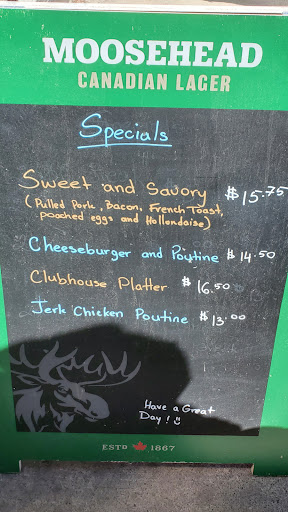 MOOSEHEAD
CANADIAN LAGER
Specials
Sweet and Savory $15.75
(Pulled Pork, Bacon, French Toast,
pooched eggs and Hollandaise)
Cheeseburger and Poutine $14.50
Clubhouse Platter $16.50
Jerk Chicken Poutine $13.00
Have a Great
Day! :)
ESTD 1867